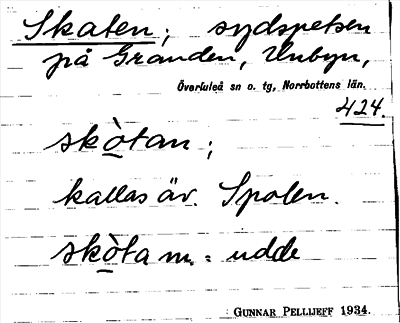 Skaten; sydspetsen
på Granden, Unbyn,
Överluleå sn o. tg, Norrbottens län.
424.
skò̲tan;
kallas äv. Spolen.
skò̲ta m. = udde
GUNNAR PELLIJEFF 1934.